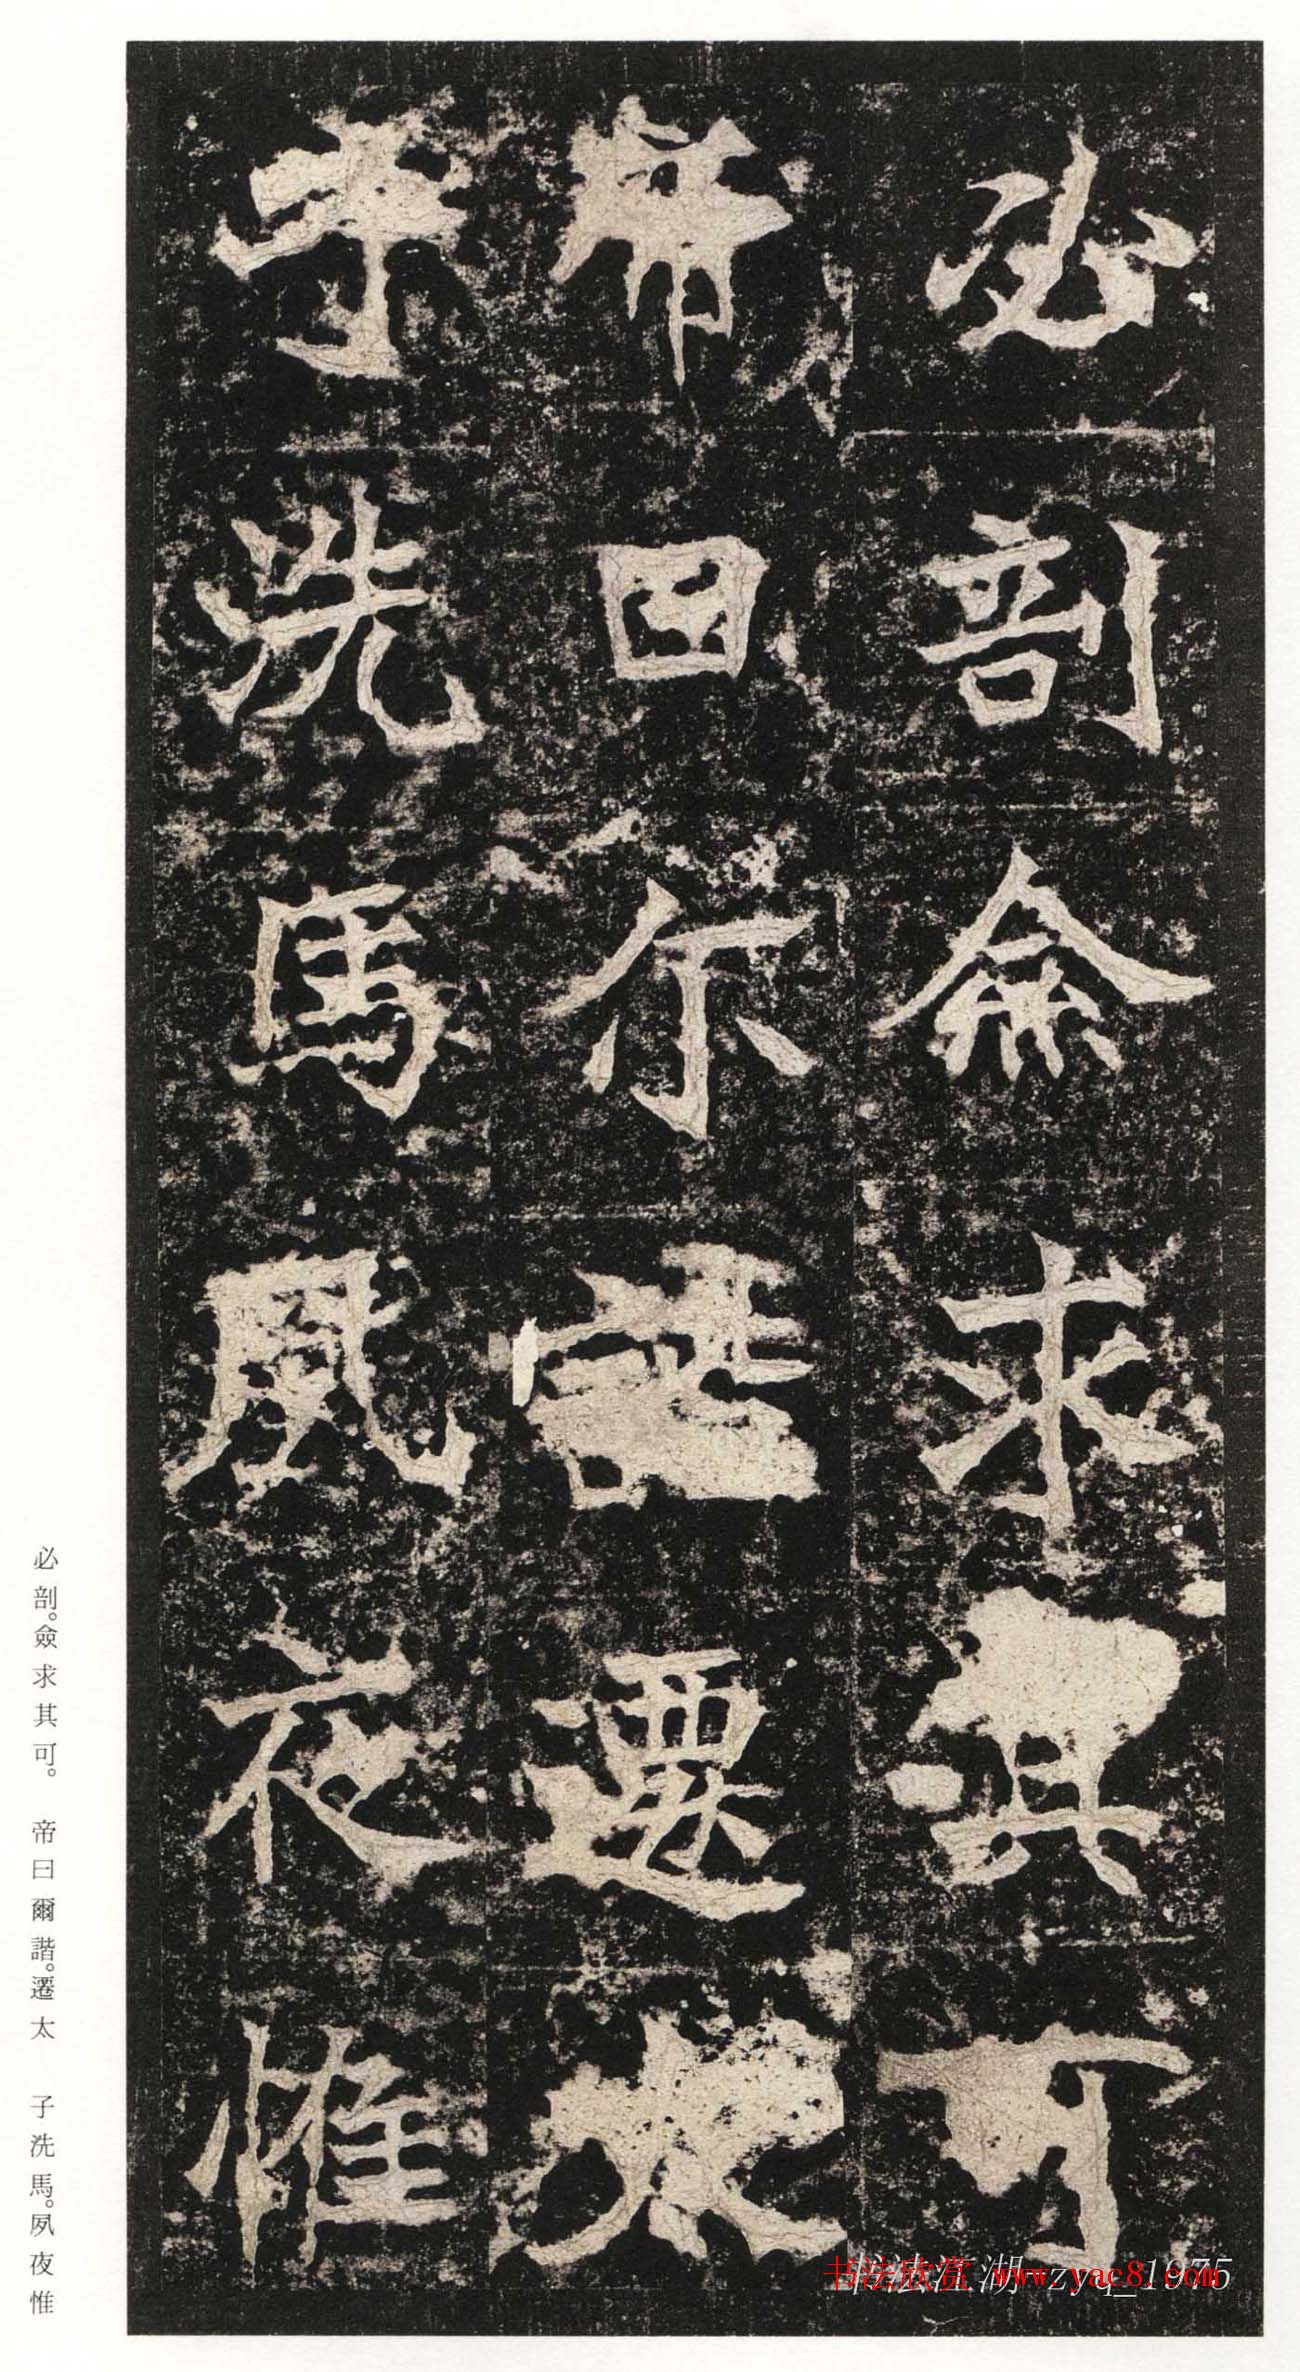 必剖僉求其可
帝曰尔諧遷太
子洗馬夙夜惟
必剖。僉求其可。 帝曰爾諧。遷太 子洗馬。夙夜惟
书法欣赏 www.yac8.com
书法江湖 zyq_1975